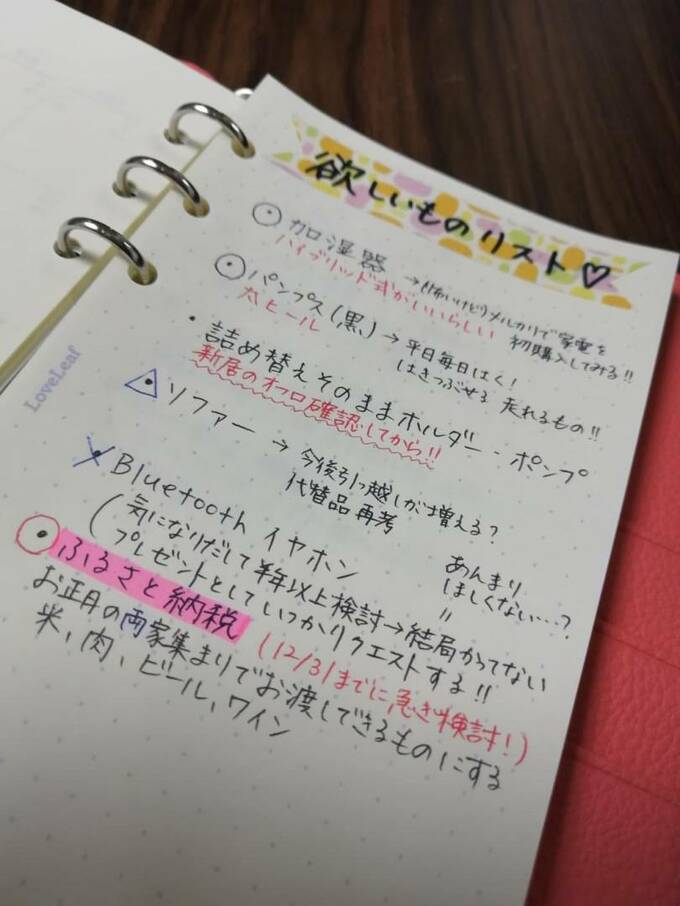 欲しいものリスト♡
加湿器 →(けわいけど)メルカリで家電を
ハイブリッド式がいいらしい 初購入してみる!!
パンプス(黒) → 平日毎日はく!
太ヒール はきつぶせる 走れるもの!!
・詰め替えそのままホルダー・ポンプ
新居のオフロ確認してから!!
ソファー → 今後引っ越しが増える?
代替品再考
Bluetooth イヤホン
(気になりだして半年以上検討→結局かってない
あんまり
ほしくない…?
プレゼントとしていつかリクエストする!!
ふるさと納税 (12/31までに急ぎ検討!)
お正月の両家集まりでお渡しできるものにする
米、肉、ビール、ワイン
LoveLeaf